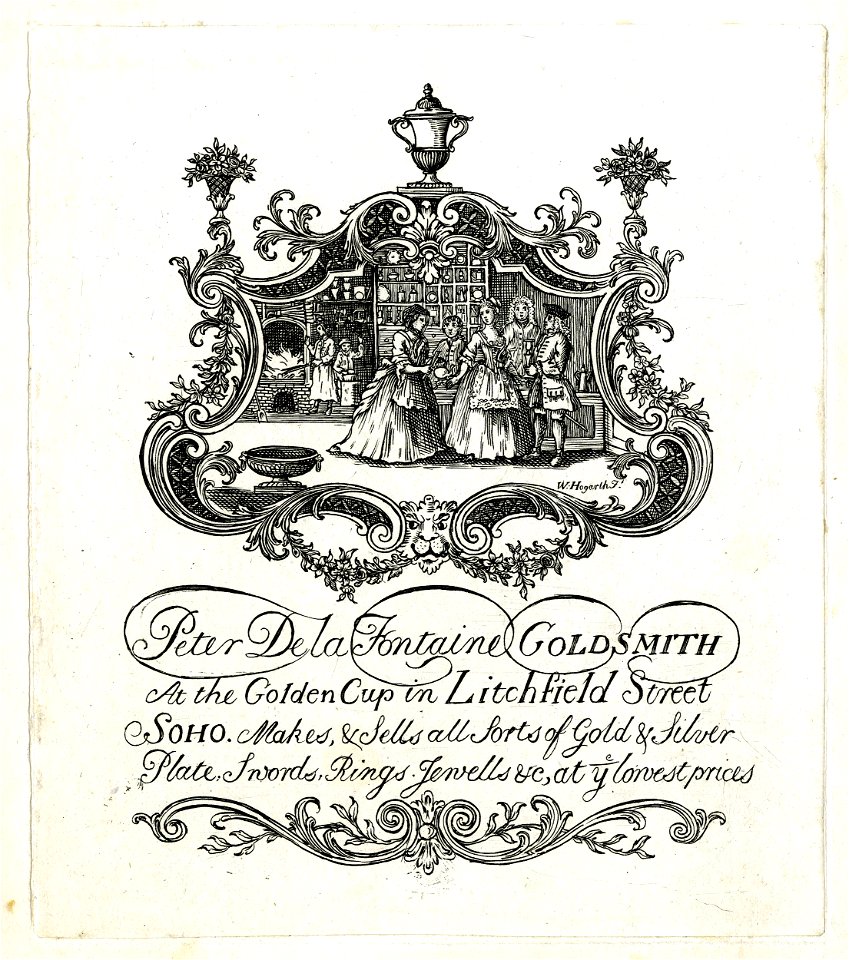 W. Hogarth F.
Peter De la Fontaine GOLDSMITH
At the Golden Cup in Litchfield Street
SOHO. Makes, & Sells all Sorts of Gold & Silver
Plate, Swords, Rings, Jewells &c, at yᵉ lowest prices